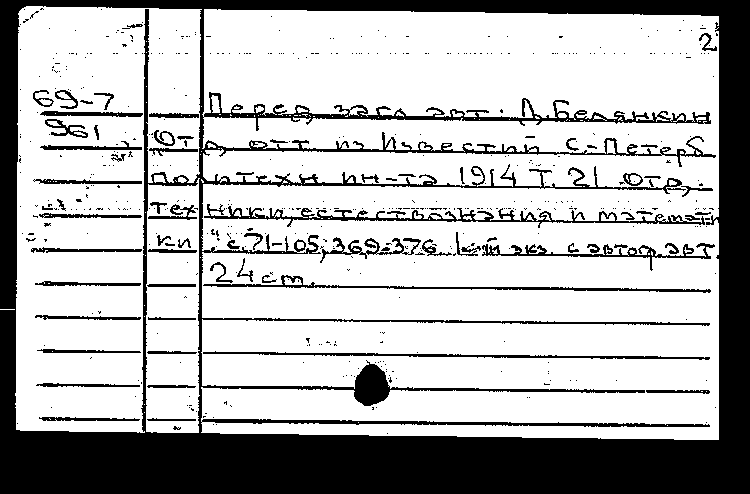 2
69-7 Перед загл авт: Д. Белянкин
961 Отд. отт из Известий С.-Петерб
политехн ин-та 1914 Т. 21 Отд.
техники, естествознания и математи
ки" с. 71-105, 369-376 1-ый экз. с автогр. авт.
24 cm.